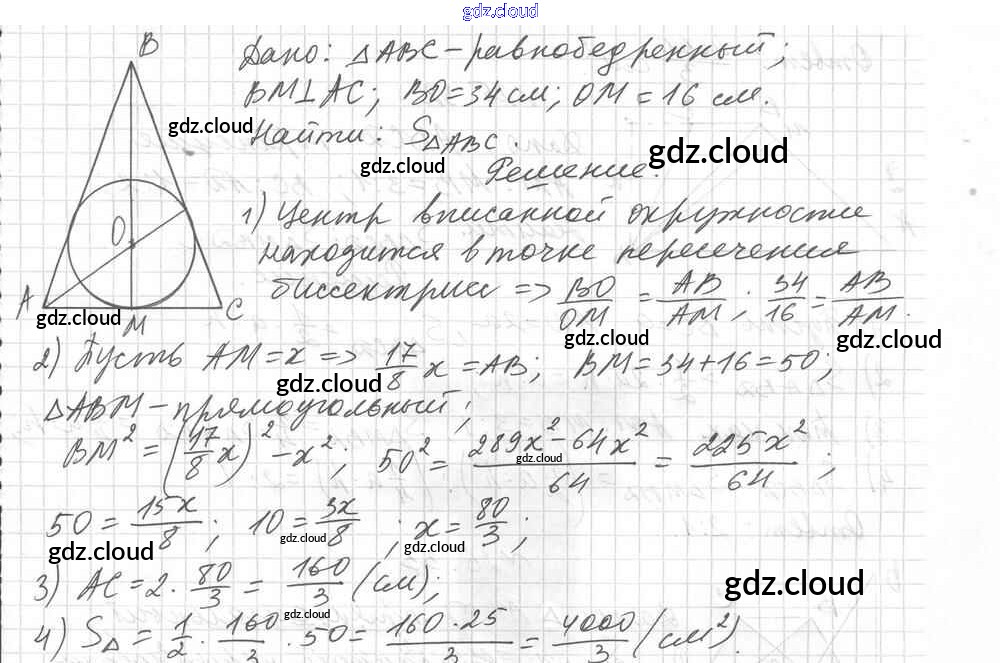 gdz.cloud
B
Дано: △ABC - равнобедренный;
BM⊥AC; BO=34 см; OM=16 см.
gdz.cloud
Найти: S△ABC.
gdz.cloud
gdz.cloud
Решение.
1) Центр вписанной окружности
O
находится в точке пересечения
биссектрис => BO/OM = AB/AM; 34/16 = AB/AM.
A
C
M
gdz.cloud
gdz.cloud
gdz.cloud
2) Пусть AM=x => 17/8 x = AB; BM=34+16=50;
gdz.cloud
△ABM - прямоугольный;
BM² = (17/8 x)² - x²; 50² = (289x² - 64x²)/64 = 225x²/64;
gdz.cloud
50 = 15x/8; 10 = 3x/8; x = 80/3;
gdz.cloud
gdz.cloud
gdz.cloud
3) AC = 2 · 80/3 = 160/3 (см);
gdz.cloud
gdz.cloud
4) S△ = 1/2 · 160/3 · 50 = 160·25/3 = 4000/3 (см²).